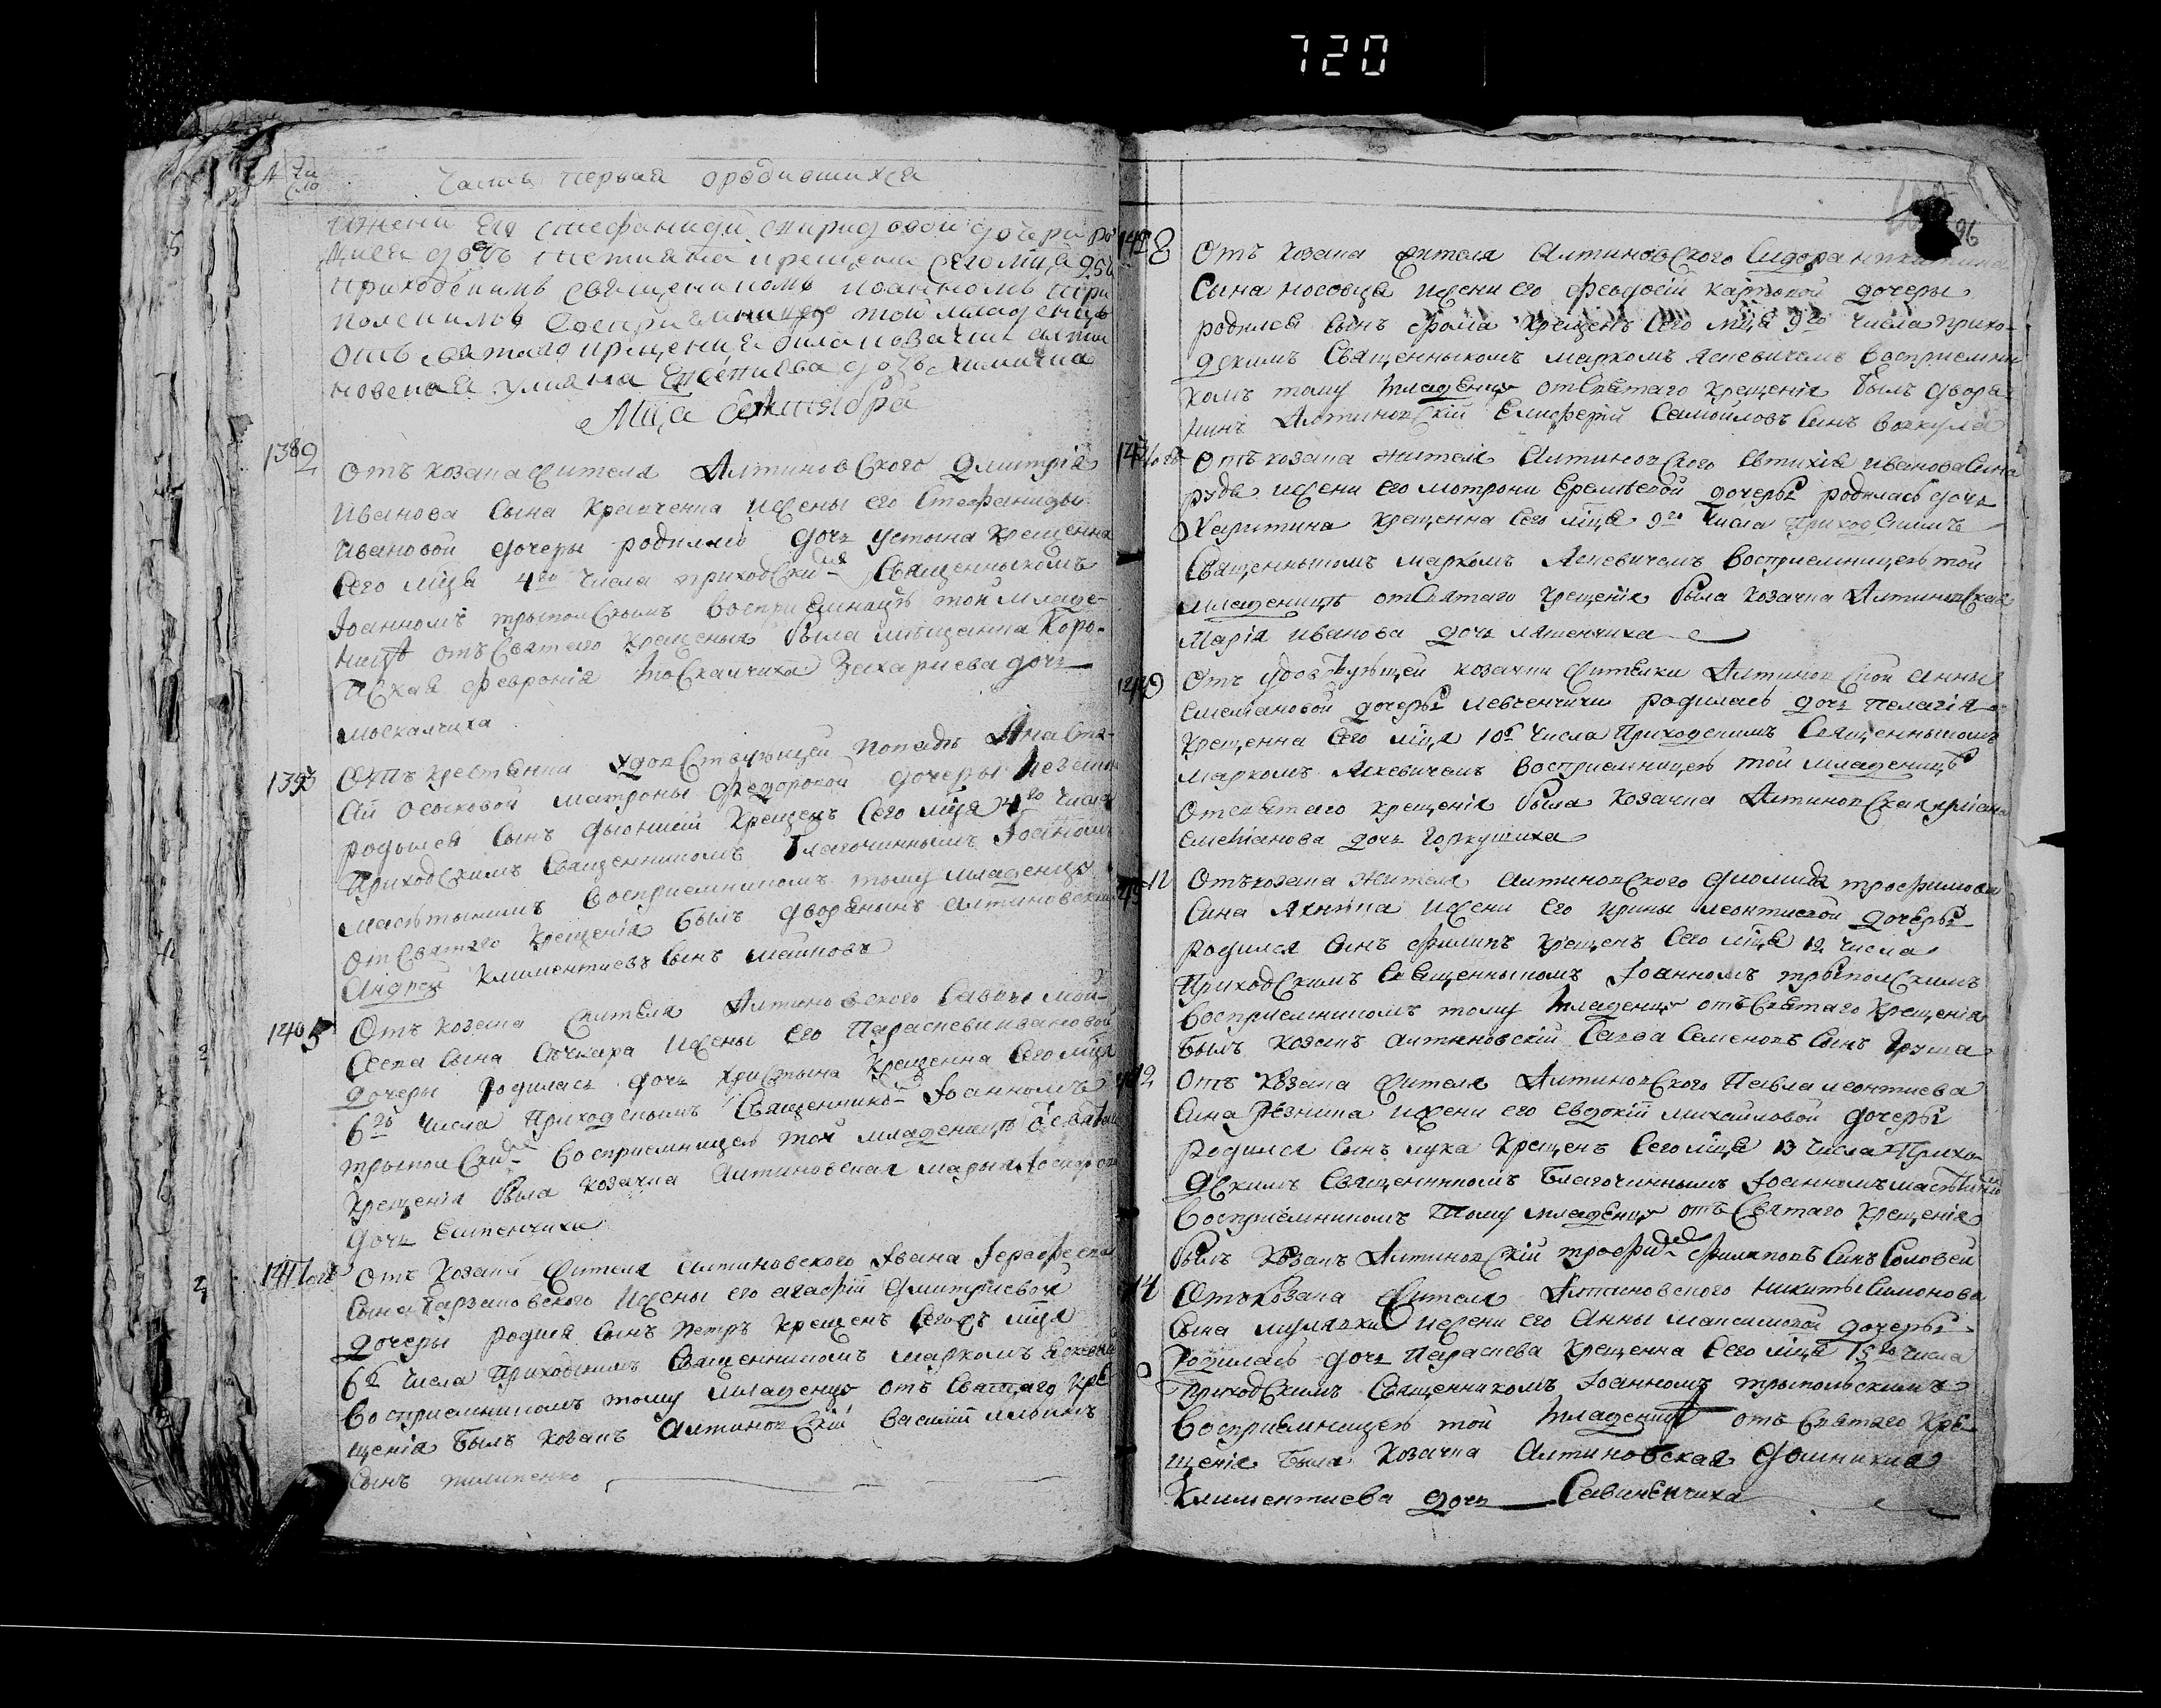 720
Часть первая ородившихся
ижени Его Стефаниди Спиридоновой дочери ро
приходскимъ священикомъ Иоанномъ Трип
польскимъ Восприемницею той младеницѣ
отъ святаго крещения била козачка алти
новская Улияна
Мца Сентября
138 2
Отъ козака жителя Алтиновского Дмитрія
Иванова Сына Кравченка Жены его Стефаниды
Ивановой дочеры родилась дочь Устына Крещенна
Сего мца 4го числа приходски Священныкомъ
Іоанномъ трыполскымъ восприемницѣ той младе-
ницѣ отъ Святаго Крещеныя была мѣщанка Коро-
пская Февронія Москалчиха Захариева дочь
москалчиха
139 3
Отъ крестянки удовствующей попадѣ Анаста-
сій Осыповой матроны Федоровой дочеры
родылся Сынъ Дыонисій Крещенъ Сего мца 4го числа
Приходскимъ Священникомъ Благочиннымъ Іоанномъ
восприемникомъ тому младенцу
от Святаго Крещенія былъ Дворянынъ алтиновский
Андрей Климентиевъ Сынъ
140 5
Отъ козака жителя Алтиновского Савы Мои-
Сеева Сына Сѣчкара Жены его Параскевии Ивановой
дочеры родилась дочь Христына Крещенна Сего мца
6го числа Приходскымъ Священнико Іоанномъ
трыполски восприемницею той младеницѣ о Святаго
Крещенія была козачка Алтиновская Марыя
дочь
141
Отъ козака жителя алтиновского Ивана Ерофеева
Сына Барзаковского Жены его агафій Дмитриевой
дочеры родися Сынъ Петръ Крещенъ Сегожъ мца
6го числа Приходскимъ Священникомъ Маркомъ
восприемникомъ тому младенцу отъ Святаго Кре
щенія былъ козакъ Алтиновскій Василій
Сынъ пилипенко
96
142 8
Отъ козака жителя Алтиновского Сидора Никитина
Сына носовца жени его Феодосій Карповой дочеры
родился Сынъ Фома Крещенъ Сего мца 9го числа прихо-
дскимъ Священныкомъ маркомъ Ясневичемъ Восприемни
комъ тому младенцу отСвятаго Крещенія былъ дворя-
нинъ Алтиновскій Елиферій Самойловъ Синъ
143
Отъ козака жителя Алтиновского Евтихія Иванова Сина
руда жени его мотрони Еремѣевой дочеры родилась дочь
Харитина Крещенна Сего мца 9го числа приходскимъ
Священныкомъ маркомъ Ясневичемъ Восприемницею той
младеницѣ отСвятаго Крещенія была козачка Алтиновская
Марія Иванова дочь
144 9
Отъ удовствующей козачки жителки Алтиновской анны
Емелиановой дочеры левченчихи родилась дочь Пелагія
Крещенна Сего мца 10го числа Приходскимъ Священныкомъ
маркомъ Ясневичемъ Восприемницею той младеницѣ
отсвятаго Крещенія была козачка Алтиновская
Емелианова дочь Горкушиха
145 12
Отъ козака жителя алтиновского Диомида трофимова
Сина Яхнина жени его Ирины Леонтиевой дочеры
родился Синъ Филипъ Крещенъ Сего мца 12 числа
Приходскимъ Священныкомъ Іоанномъ трыполскимъ
Восприемникомъ тому младенцу отъ Святаго Крещенія
былъ козакъ алтиновскій Савва Семеновъ Сынъ Груша
12
Отъ козака жителя Алтиновского Павла Леонтиева
Сина Рѣзника жени его Евдокій Михайловой дочеры
родился Сынъ Лука Крещенъ Сего мца 13 числа Прихо-
дскимъ Священникомъ Благочиннымъ Іоанномъ
Восприемникомъ тому младенцу отъ Святаго Крещенія
былъ козакъ Алтиновскій трофи Филиповъ Синъ Соловей
14
Отъ козака жителя Алтиновского Никиты Симонова
Сына мулявки жени его Анны Максимовой дочеры
родилась дочь Параскева Крещенна Сего мца 15го числа
Приходскимъ Священникомъ Іоанномъ трыпольскимъ
Восприемницею той младеницѣ отъ Святаго Кре-
щенія была козачка Алтиновская Домникия
Климентиева дочь Савинѣнчиха